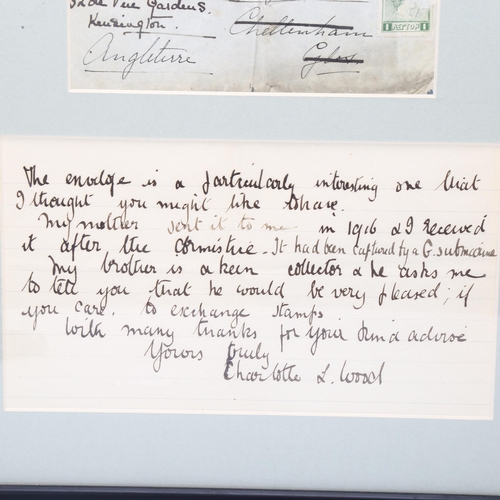 32 de Vere Gardens.
Kensington.
Angleterre
Cheltenham
Glos
1
ΛΕΠΤΟΝ
1
The envelope is a particularly interesting one that
I thought you might like to have.
My mother sent it to me in 1916 & I received
it after the armistice. It had been captured by a G. submarine
My brother is a keen collector & he asks me
to tell you that he would be very pleased; if
you care. to exchange stamps
With many thanks for your kind advise
Yours truly
Charlotte L. Wood